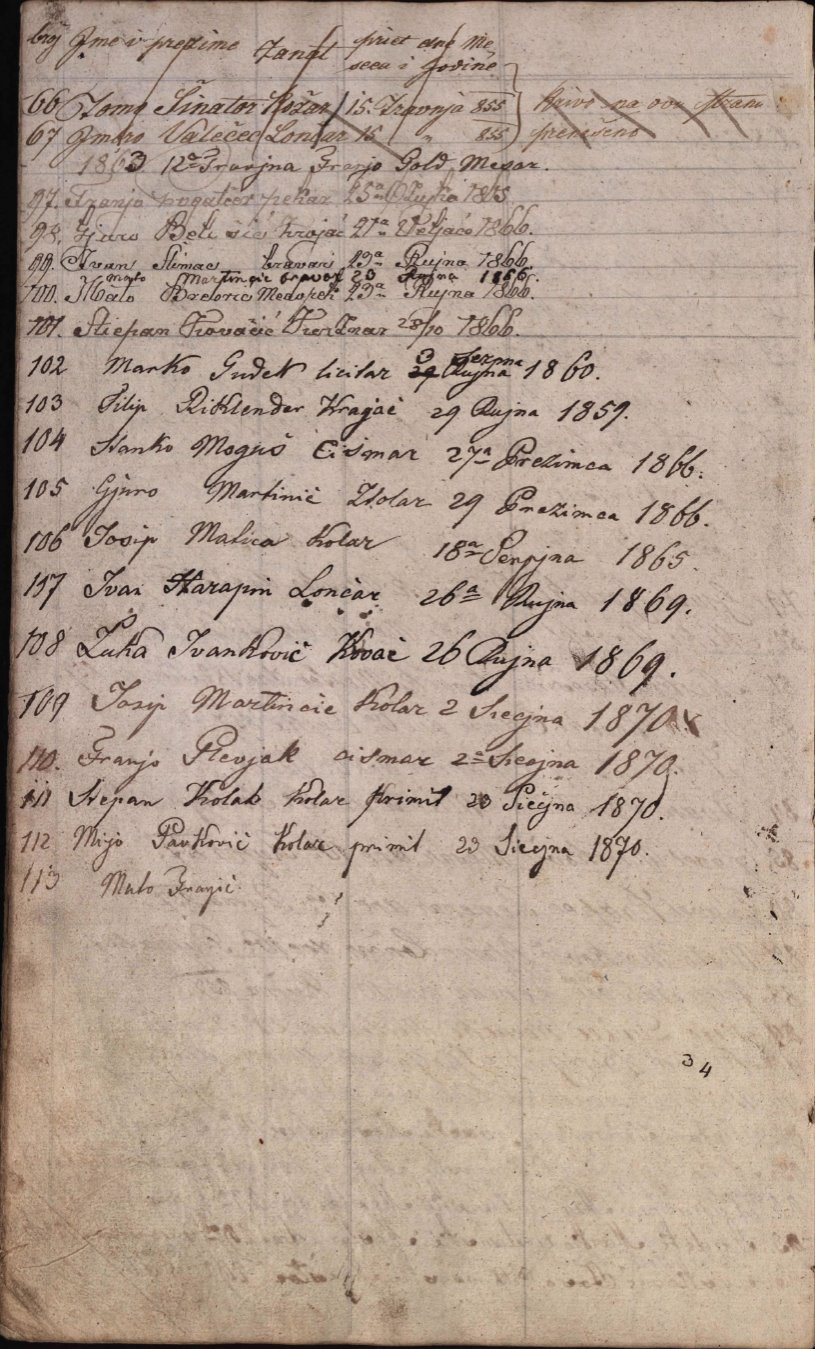 broj Jme i prezime Zanat priet dne Me
secu i godine
66 Tomo Šinator Kožar 15. Travnja 855 Krivo na ovu stranu
67 Jmbro Valečec Lončar 15 " 855 prenešeno
1863 12a Travjna Franjo Gold Mesar.
97. Franjo pekar 25a
98. Gjuro Krojač 21a Veljače 1866.
99. Ivan Slimac bravari 29a Rujna 1866.
Mato Martincic bravar 20 Rujna 1866.
100. Mato Medopek 29a Rujna 1866.
101. Stiepan Kovačić 28/10 1866.
102 Marko Gudek licitar 3 Serpna 29 Rujna 1860.
103 Filip Riklender Krajač 29 Rujna 1859.
104 Stanko Moguš Čismar 27a Prezimca 1866.
105 Gjuro Martinič Stolar 29 Prezimca 1866.
106 Josip Matica Kolar 18a Serpjna 1865.
157 Ivan Starapin Lončar 26a Rujna 1869.
108 Luka Ivanković Kovač 26 Rujna 1869.
109 Josip Martincic Kolar 2 Siecjna 1870
110. Franjo Plevjak cismar 2a Siecjna 1870.
111 Stepan Kolak Kolar primit 23 Siecjna 1870.
112 Mijo Pavković Kolar primit 23 Siecjna 1870.
113 Mato Fragić
34